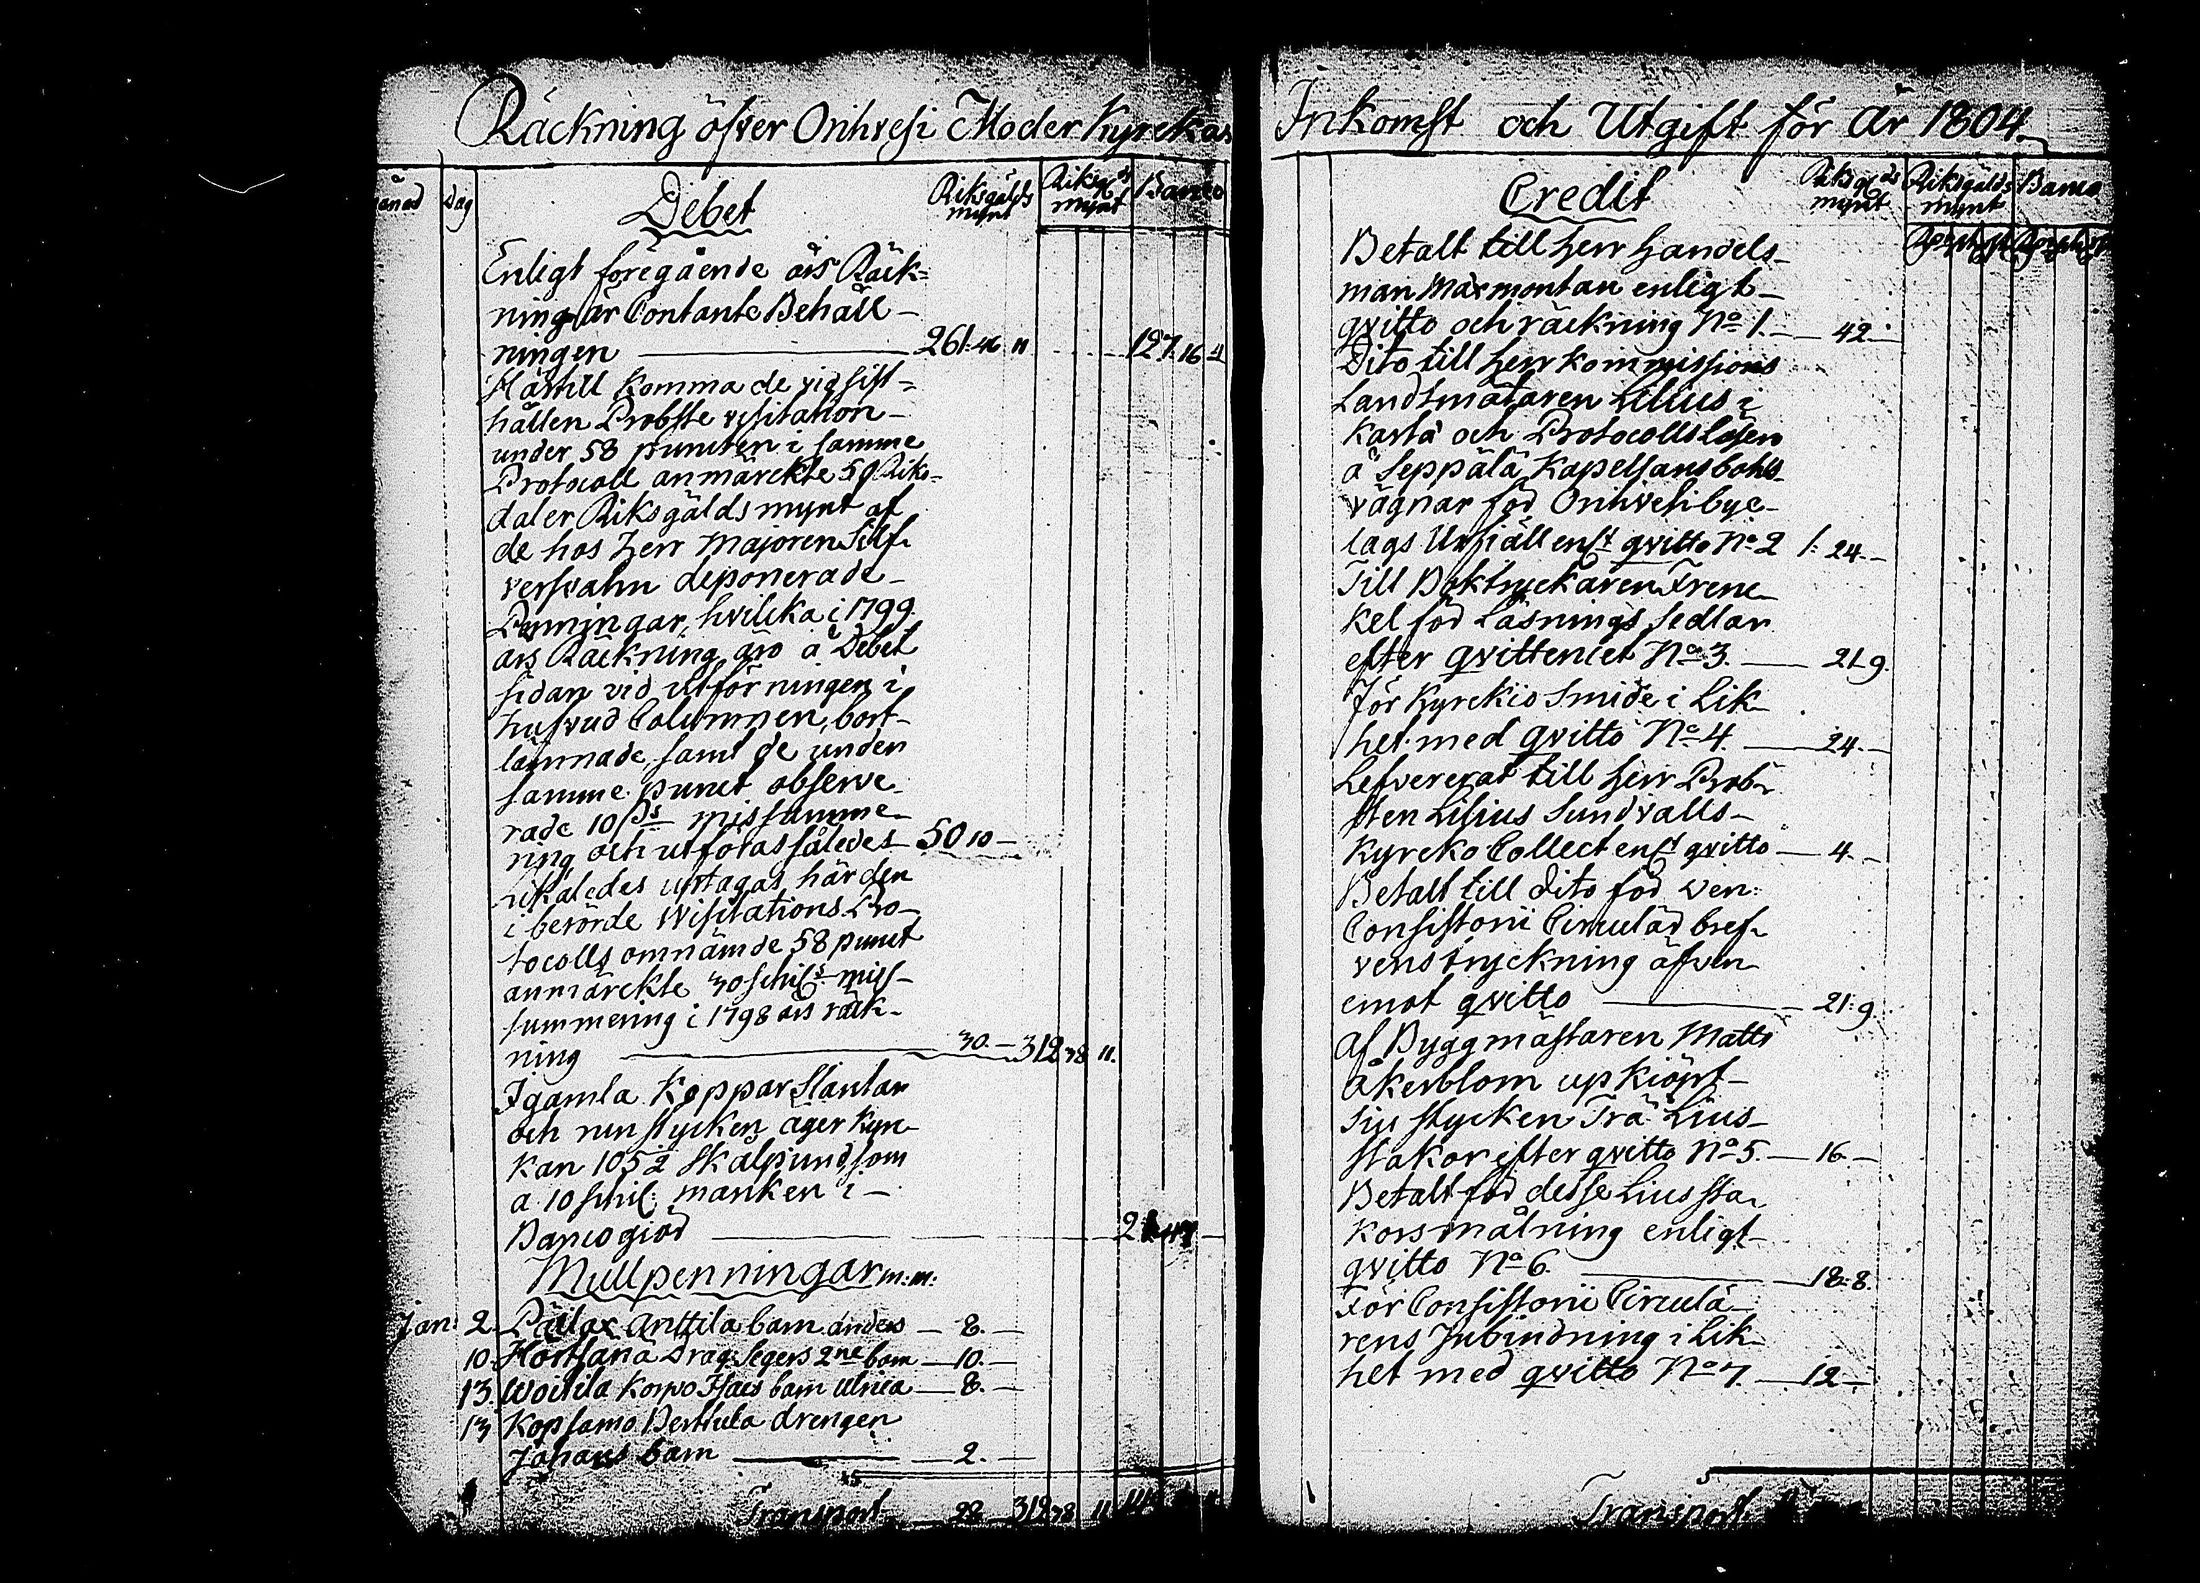 Räckning öfver Orihvesi Moder Kyrckas
månad Dag Debet Riksgälds mynt Riksg:ds mynt Banco
Enligt föregående års Räck=
ning är Contante Behåll-
ningen 261: 46 11 127. 16 4
Härtill komma de vid sist=
hållen Probste visitation-
under 58 puncten i samme
Protocoll anmärckte 50 Riks=
daler Riksgälds mynt af
de hos Herr Majoren Silf-
versvahn deponerade-
Penningar, hvilcka i 1799
års Räckning äro å Debet
sidan vid utförningen i
hufvud Columnen, bort-
lämnade, samt de under
samme punct observe-
rade 10 ss missumme-
ring och utföras således 50 10 -
Likaledes uptagas här den
i berörde Wisitations Pro-
tocolls omnämde 58 punct
anmärckte 30 schil:s miss-
summering i 1798 års räk-
ning 30. - 312 38 11.
I gamla Koppar Slantar
och runstycken äger Kyr-
kan 105 2 Skålpund, som
a 10 schil: marken i -
Banco giör
Mullpenningar m:m:
Jan: 2. Pailax Anttila barn Anders - 8. -
10. Hörtsänä Drag: Segers 2ne barn - 10. -
13. Woitila Korpo Isacs barn Ulrica - 8. -
13 Kopsamo Perttula drengen
Johans barn - 2. -
Transport 28 312 38 11
Inkomst och Utgift för År 1804.
Credit Riksg:ds mynt Riksgälds mynt Banco
Betalt till herr handels-
man Marmontan enligt-
qvitto och räckning No 1. - 42. -
Dito till herr kommissions
Landtmätaren Lilius i
Karta och Protocolls lösen
å Seppälä Kapellansbohls-
vägnar för Orihvesi bye-
lags Utfjäll ens:t qvitto No 2 1: 24. -
Till Boktryckaren Frenc-
kel för Läsnings Sedlar
efter qvittencet No 3. - 21. 9.
För Kyrckio Smide i Lik-
het med qvitto No 4. - 24. -
Lefvererat till herr Prob-
sten Lilius Sundvalls-
Kyrcko Collect ens:t qvitto - 4. -
Betalt till dito för Ven:
Consistorii Circulär bref-
vens tryckning äfven
emot qvitto - 21: 9.
Af Byggmästaren Matts
Åkerblom upkiöpt-
siu stycken Trä Lius-
stakor efter qvitto No 5. - 16. -
Betalt för desse Liussta-
kors målning enligt-
qvitto No 6. - 18: 8.
För Consistorii Circulä-
rens Inbindning i Lik-
het med qvitto No 7. - 12 -
Transport